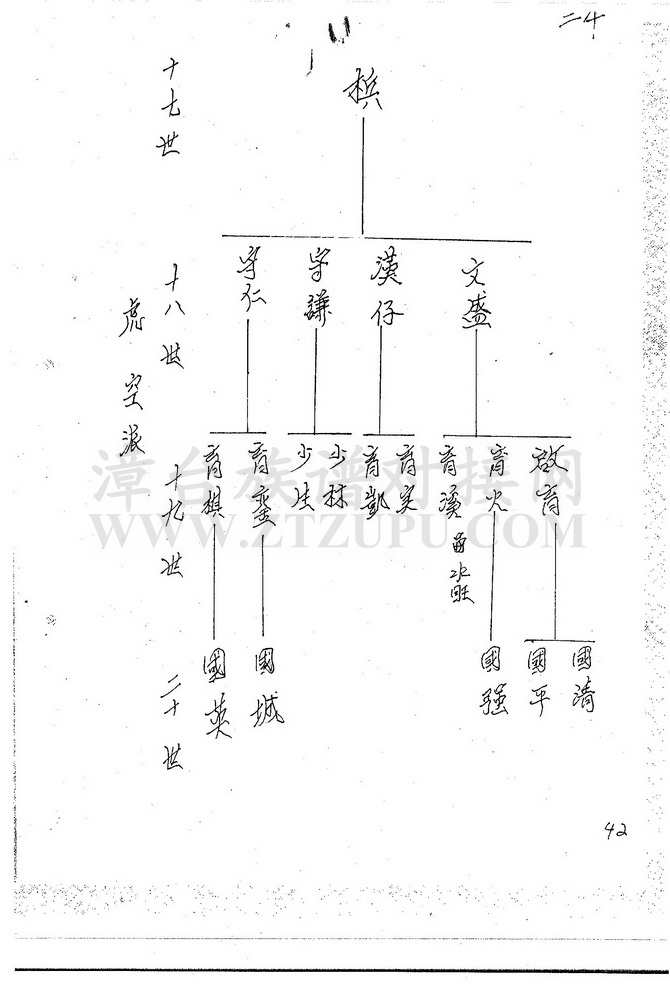 二十
十七世
梹
十八世
虎空派
文盛
漢仔
守謙
守仁
十九世
啟育
育火
育漢
水旺
育実
育凱
少林
少生
育蛮
育棋
二十世
國清
國平
國强
國城
國英
42
漳台族谱对接网
WWW.ZTZUPU.COM